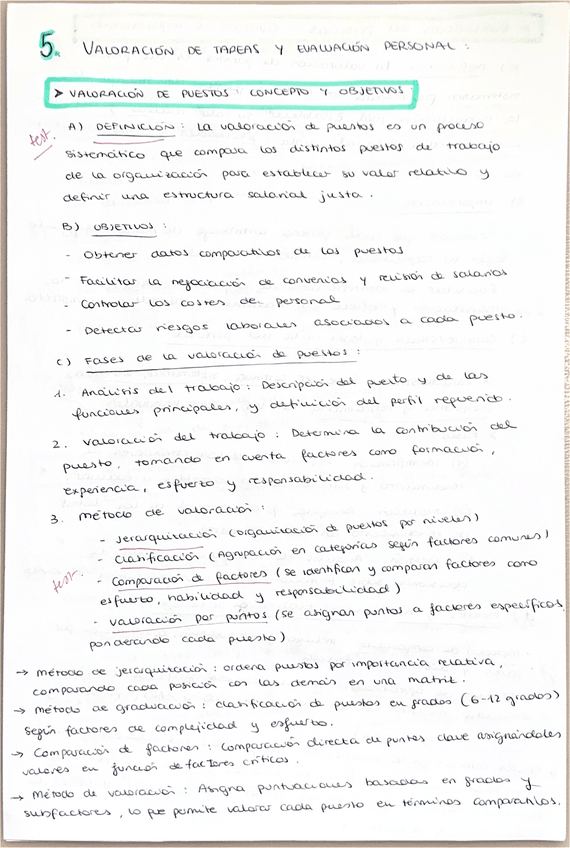 5. VALORACIÓN DE TAREAS Y EVALUACIÓN PERSONAL:
➤ VALORACIÓN DE PUESTOS: CONCEPTO Y OBJETIVOS:
A) DEFINICIÓN: La valoración de puestos es un proceso
test.
sistemático que compara los distintos puestos de trabajo
de la organización para establecer su valor relativo y
definir una estructura salarial justa.
B) OBJETIVOS:
- Obtener datos comparativos de los puestos
- Facilitar la negociación de convenios y revisión de salarios
- Controlar los costes de personal
- Detectar riesgos laborales asociados a cada puesto.
C) FASES de la valoración de puestos:
1. Análisis del trabajo: Descripción del puesto y de las
funciones principales, y definición del perfil requerido.
2. Valoración del trabajo: Determina la contribución del
puesto, tomando en cuenta factores como formación,
experiencia, esfuerzo y responsabilidad.
3. Método de valoración:
- Jerarquización (organización de puestos por niveles)
- Clasificación (Agrupación en categorías según factores comunes)
test. - Comparación de factores (se identifican y comparan factores como
esfuerzo, habilidad y responsabilidad)
- Valoración por puntos (se asignan puntos a factores específicos,
ponderando cada puesto)
→ Método de jerarquización: ordena puestos por importancia relativa,
comparando cada posición con las demás en una matriz.
→ Método de graduación: clasificación de puestos en grados (6-12 grados)
según factores de complejidad y esfuerzo.
→ Comparación de factores: comparación directa de puntos clave asignándoles
valores en función de factores críticos.
→ Método de valoración: Asigna puntuaciones basadas en grados y
subfactores, lo que permite valorar cada puesto en términos comparativos.